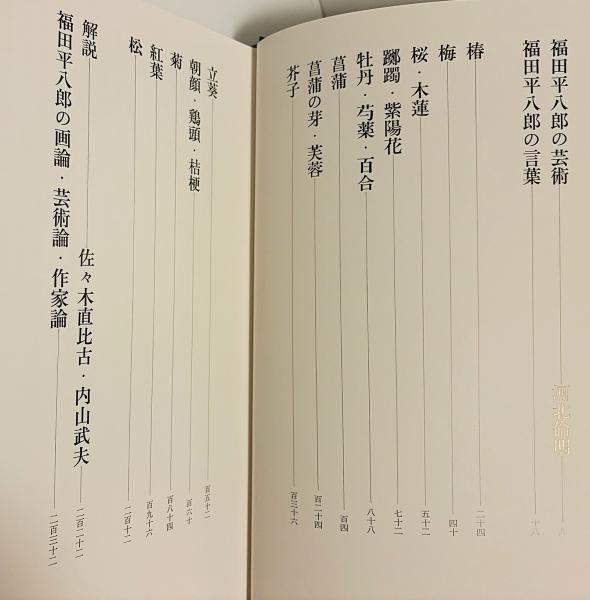 福田平八郎の芸術 河北倫明 九
福田平八郎の言葉 十八
椿 二十四
梅 四十
桜・木蓮 五十二
躑躅・紫陽花 七十二
牡丹・芍薬・百合 八十八
菖蒲 百四
菖蒲の芽・芙蓉 百二十四
芥子 百三十六
立葵 百五十二
朝顔・鶏頭・桔梗 百六十
菊 百八十四
紅葉 百九十六
松 二百十二
解説 佐々木直比古・内山武夫 二百二十二
福田平八郎の画論・芸術論・作家論 二百三十二